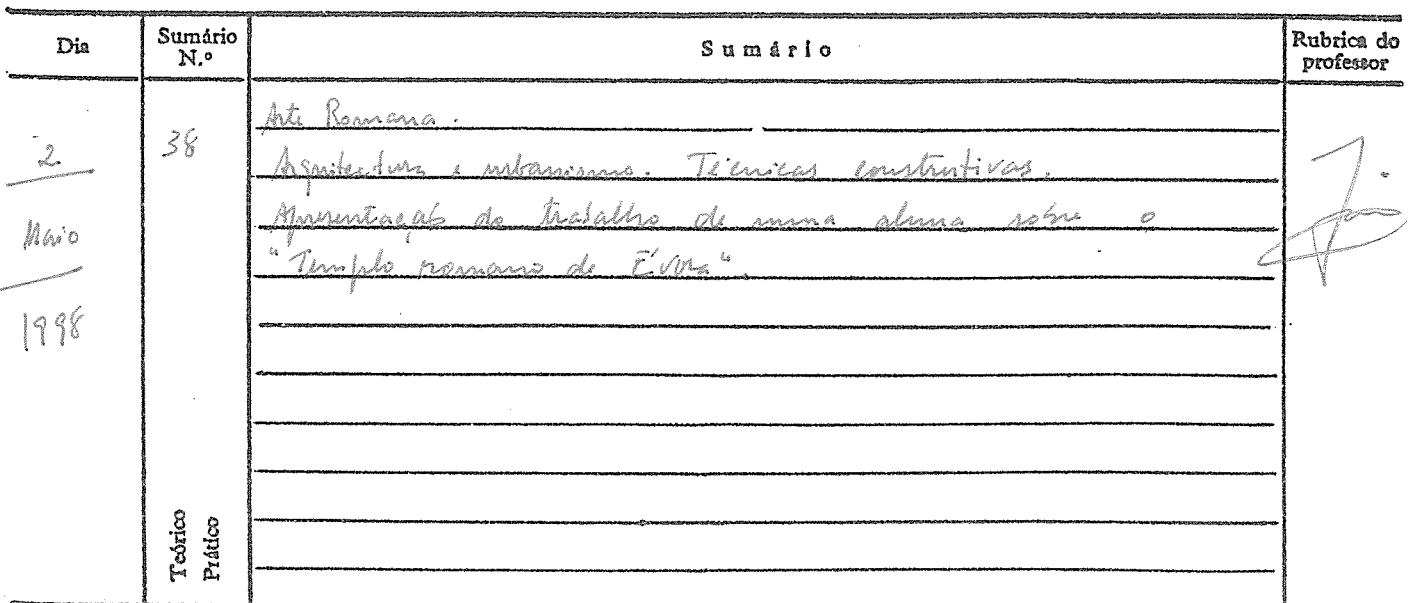 Dia Sumário N.º Sumário Rubrica do professor
2 Maio 1998
38
Arte Romana.
Arquitectura e urbanismo. Técnicas construtivas.
Apresentação do trabalho de uma aluna sobre o
"Templo romano de Évora".
Teórico
Prático